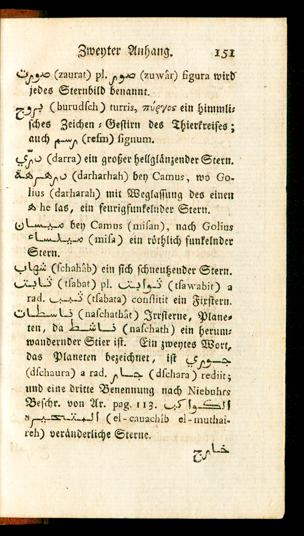 Zweyter Anhang. 151
صورت (zaurat) pl. صور (zuwâr) figura wird
jedes Sternbild benannt.
بروج (burudsch) turris, πύργος ein himmli-
sches Zeichen-Gestirn des Thierkreises;
auch رسم (resm) signum.
(darra) ein großer hellglänzender Stern.
(darharhah) bey Camus, wo Go-
lius (darharah) mit Weglassung des einen
h he las, ein feurigfunkelnder Stern.
ميسان bey Camus (misan), nach Golius
ميلساء (misa) ein röthlich funkelnder
Stern.
شهاب (schahâb) ein sich schneutzender Stern.
ثابت (tsabat) pl. ثوابت (tsawabit) a
rad. ثبت (tsabata) constitit ein Fixstern.
ناشطات (naschathât) Irrsterne, Plane-
ten, da ناشط (naschath) ein herum-
wandernder Stier ist. Ein zweytes Wort,
das Planeten bezeichnet, ist جوري
(dschaura) a rad. جار (dschara) rediit;
und eine dritte Benennung nach Niebuhrs
Beschr. von Ar. pag. 113. الكواكب
المتحيره (el-cauachib el-muthai-
reh) veränderliche Sterne.
خارج